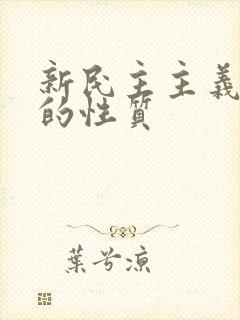 新民主主義
的性質
葉兮涼